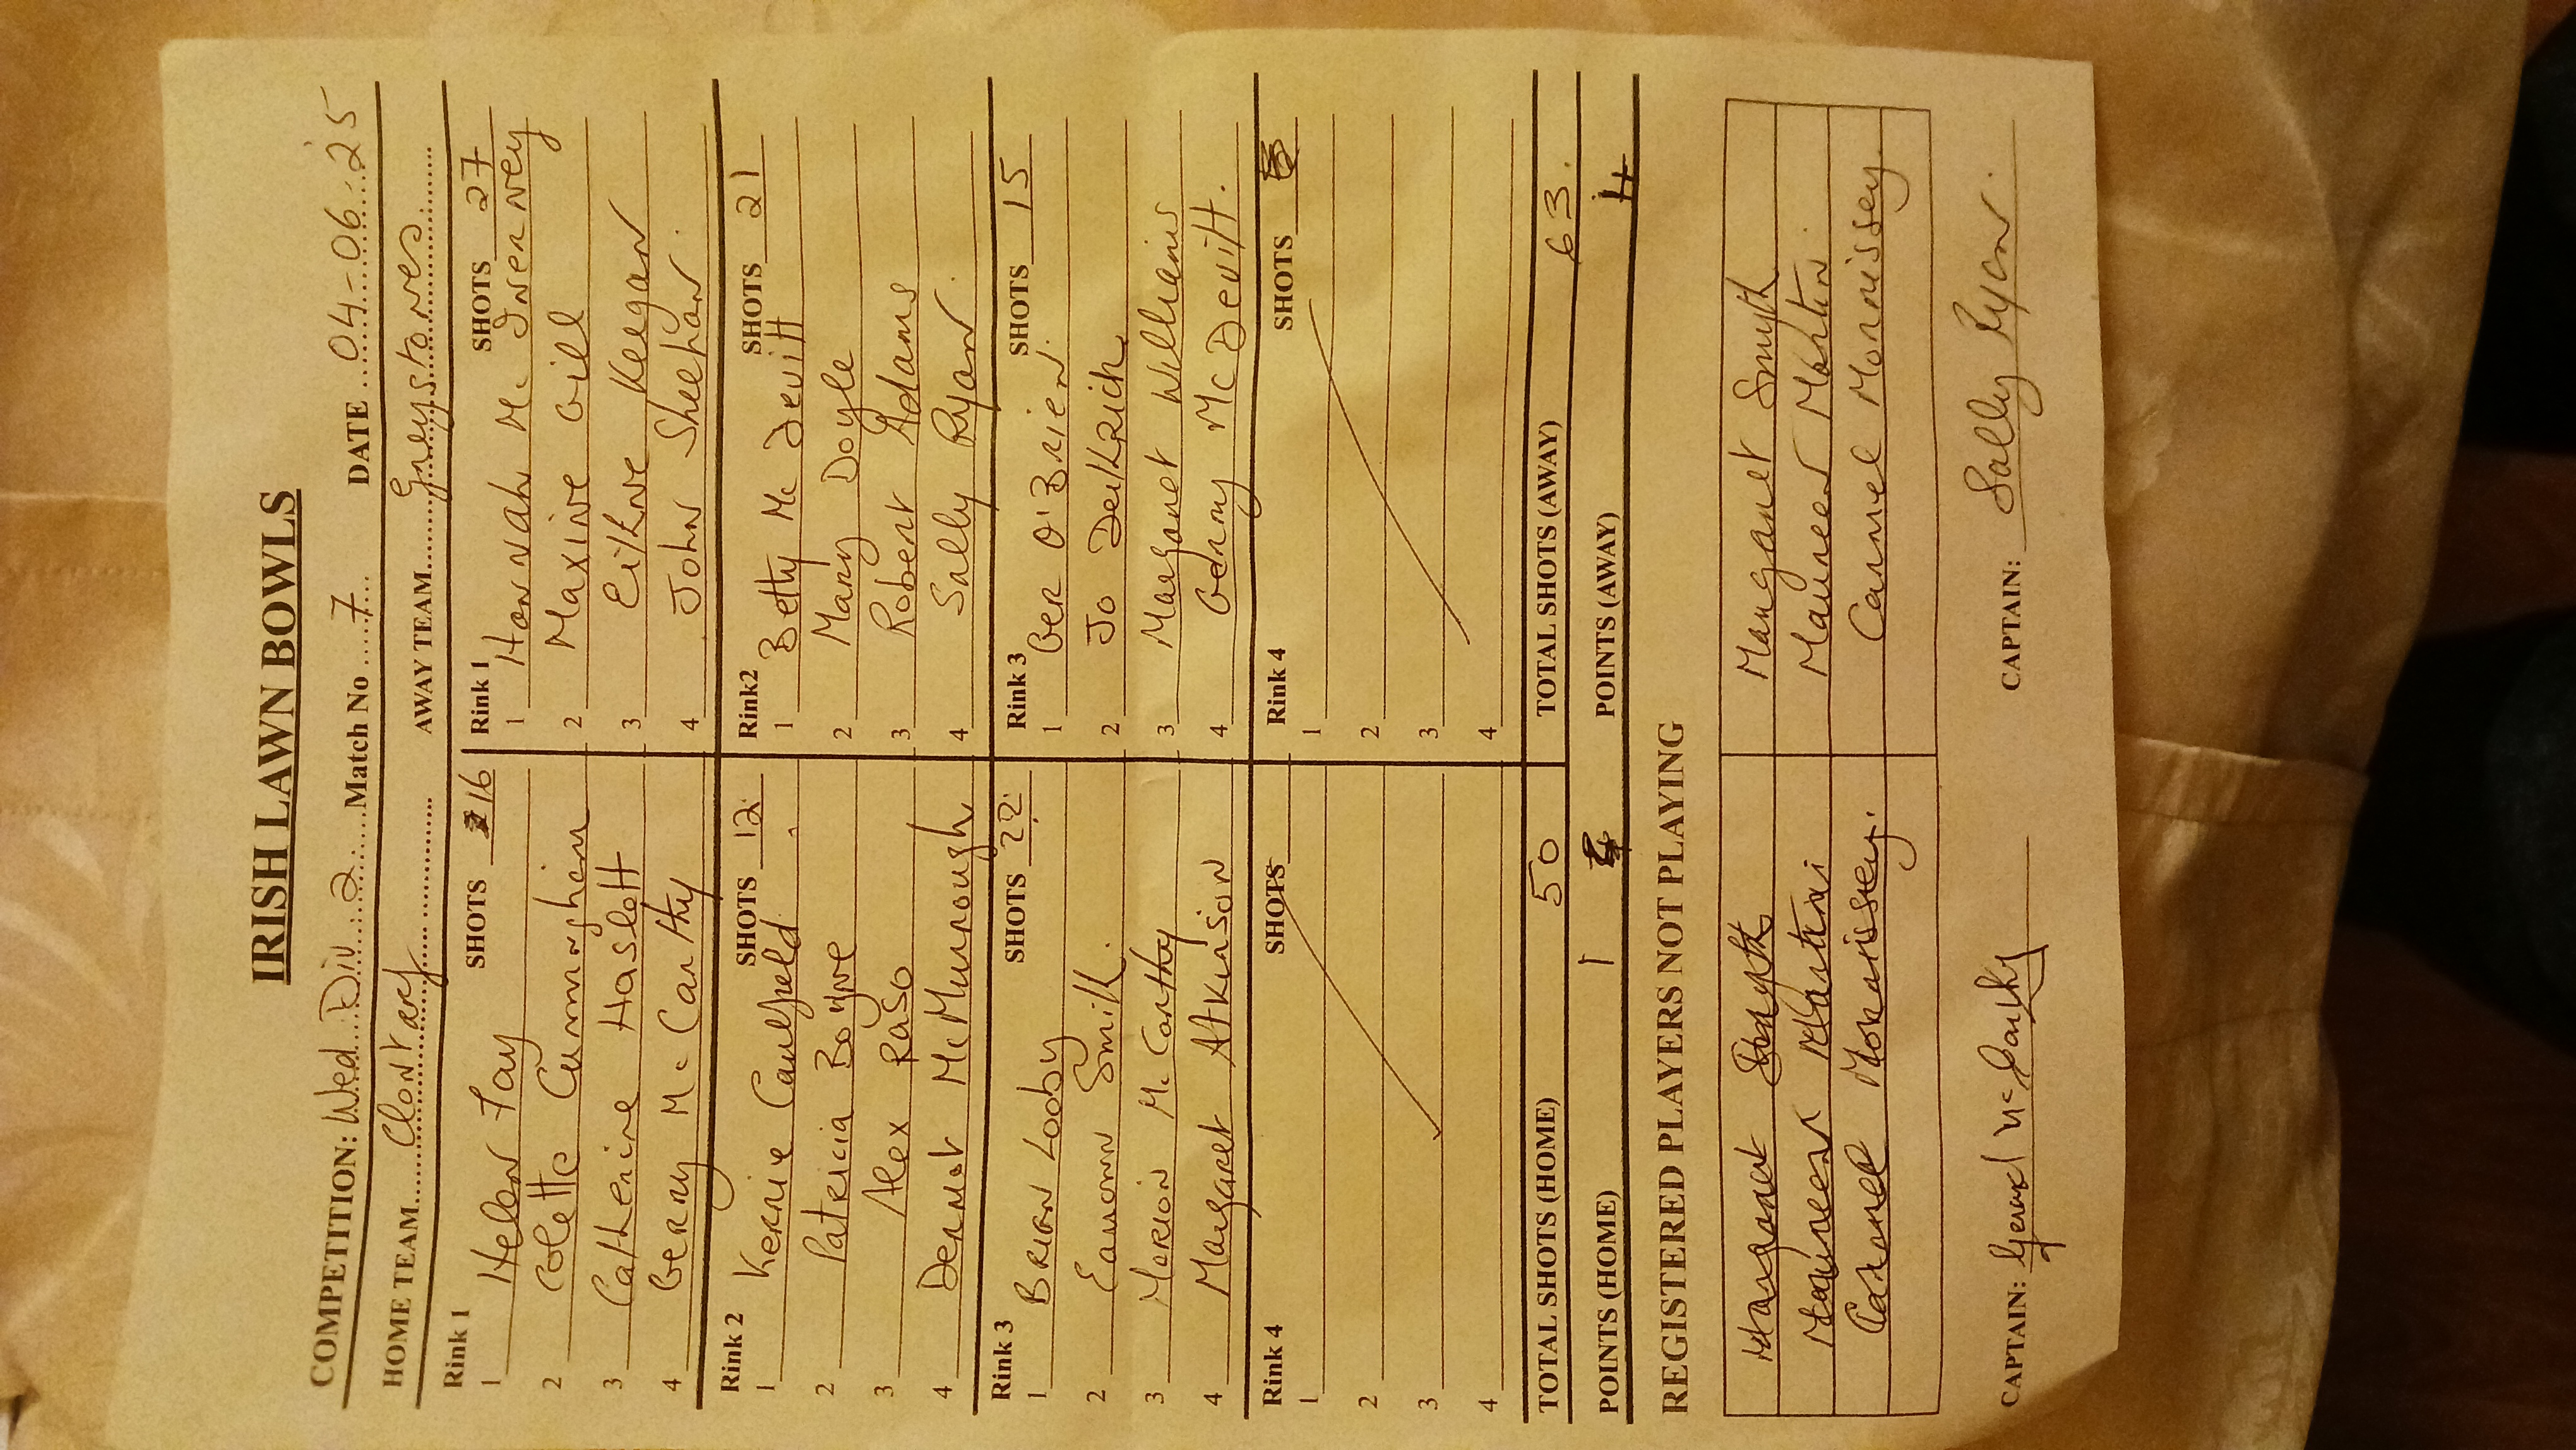 IRISH LAWN BOWLS
COMPETITION: Wed Div 2 Match No 7 DATE 04-06-25
HOME TEAM Clontarf AWAY TEAM Greystones
Rink 1 SHOTS 16
1 Helen Fay
2 Colette Cunningham
3 Catherine Haslett
4 Gerry Mc Carthy
Rink 1 SHOTS 27
1 Hannah Mc Inerney
2 Maxine Gill
3 Eithne Keegan
4 John Sheehan
Rink 2 SHOTS 12
1 Kerrie Caulfield
2 Patricia Boyne
3 Alex Raso
4 Dermot McMurrough
Rink2 SHOTS 21
1 Betty Mc Devitt
2 Mary Doyle
3 Robert Adams
4 Sally Ryan
Rink 3 SHOTS 22
1 Brian Looby
2 Eamonn Smith
3 Marion McCarthy
4 Margaret Atkinson
Rink 3 SHOTS 15
1 Ger O'Brien
2 Jo
3 Margaret Williams
4 Gerry Mc Devitt.
Rink 4 SHOTS
1
2
3
4
Rink 4 SHOTS
1
2
3
4
TOTAL SHOTS (HOME) 50 TOTAL SHOTS (AWAY) 63.
POINTS (HOME) 1 POINTS (AWAY) 4
REGISTERED PLAYERS NOT PLAYING
Margaret Smyth Margaret Smyth
Maureen Martin Maureen Martin
Carmel Morrissey. Carmel Morrissey.
CAPTAIN: Gerard McCarthy CAPTAIN: Sally Ryan.